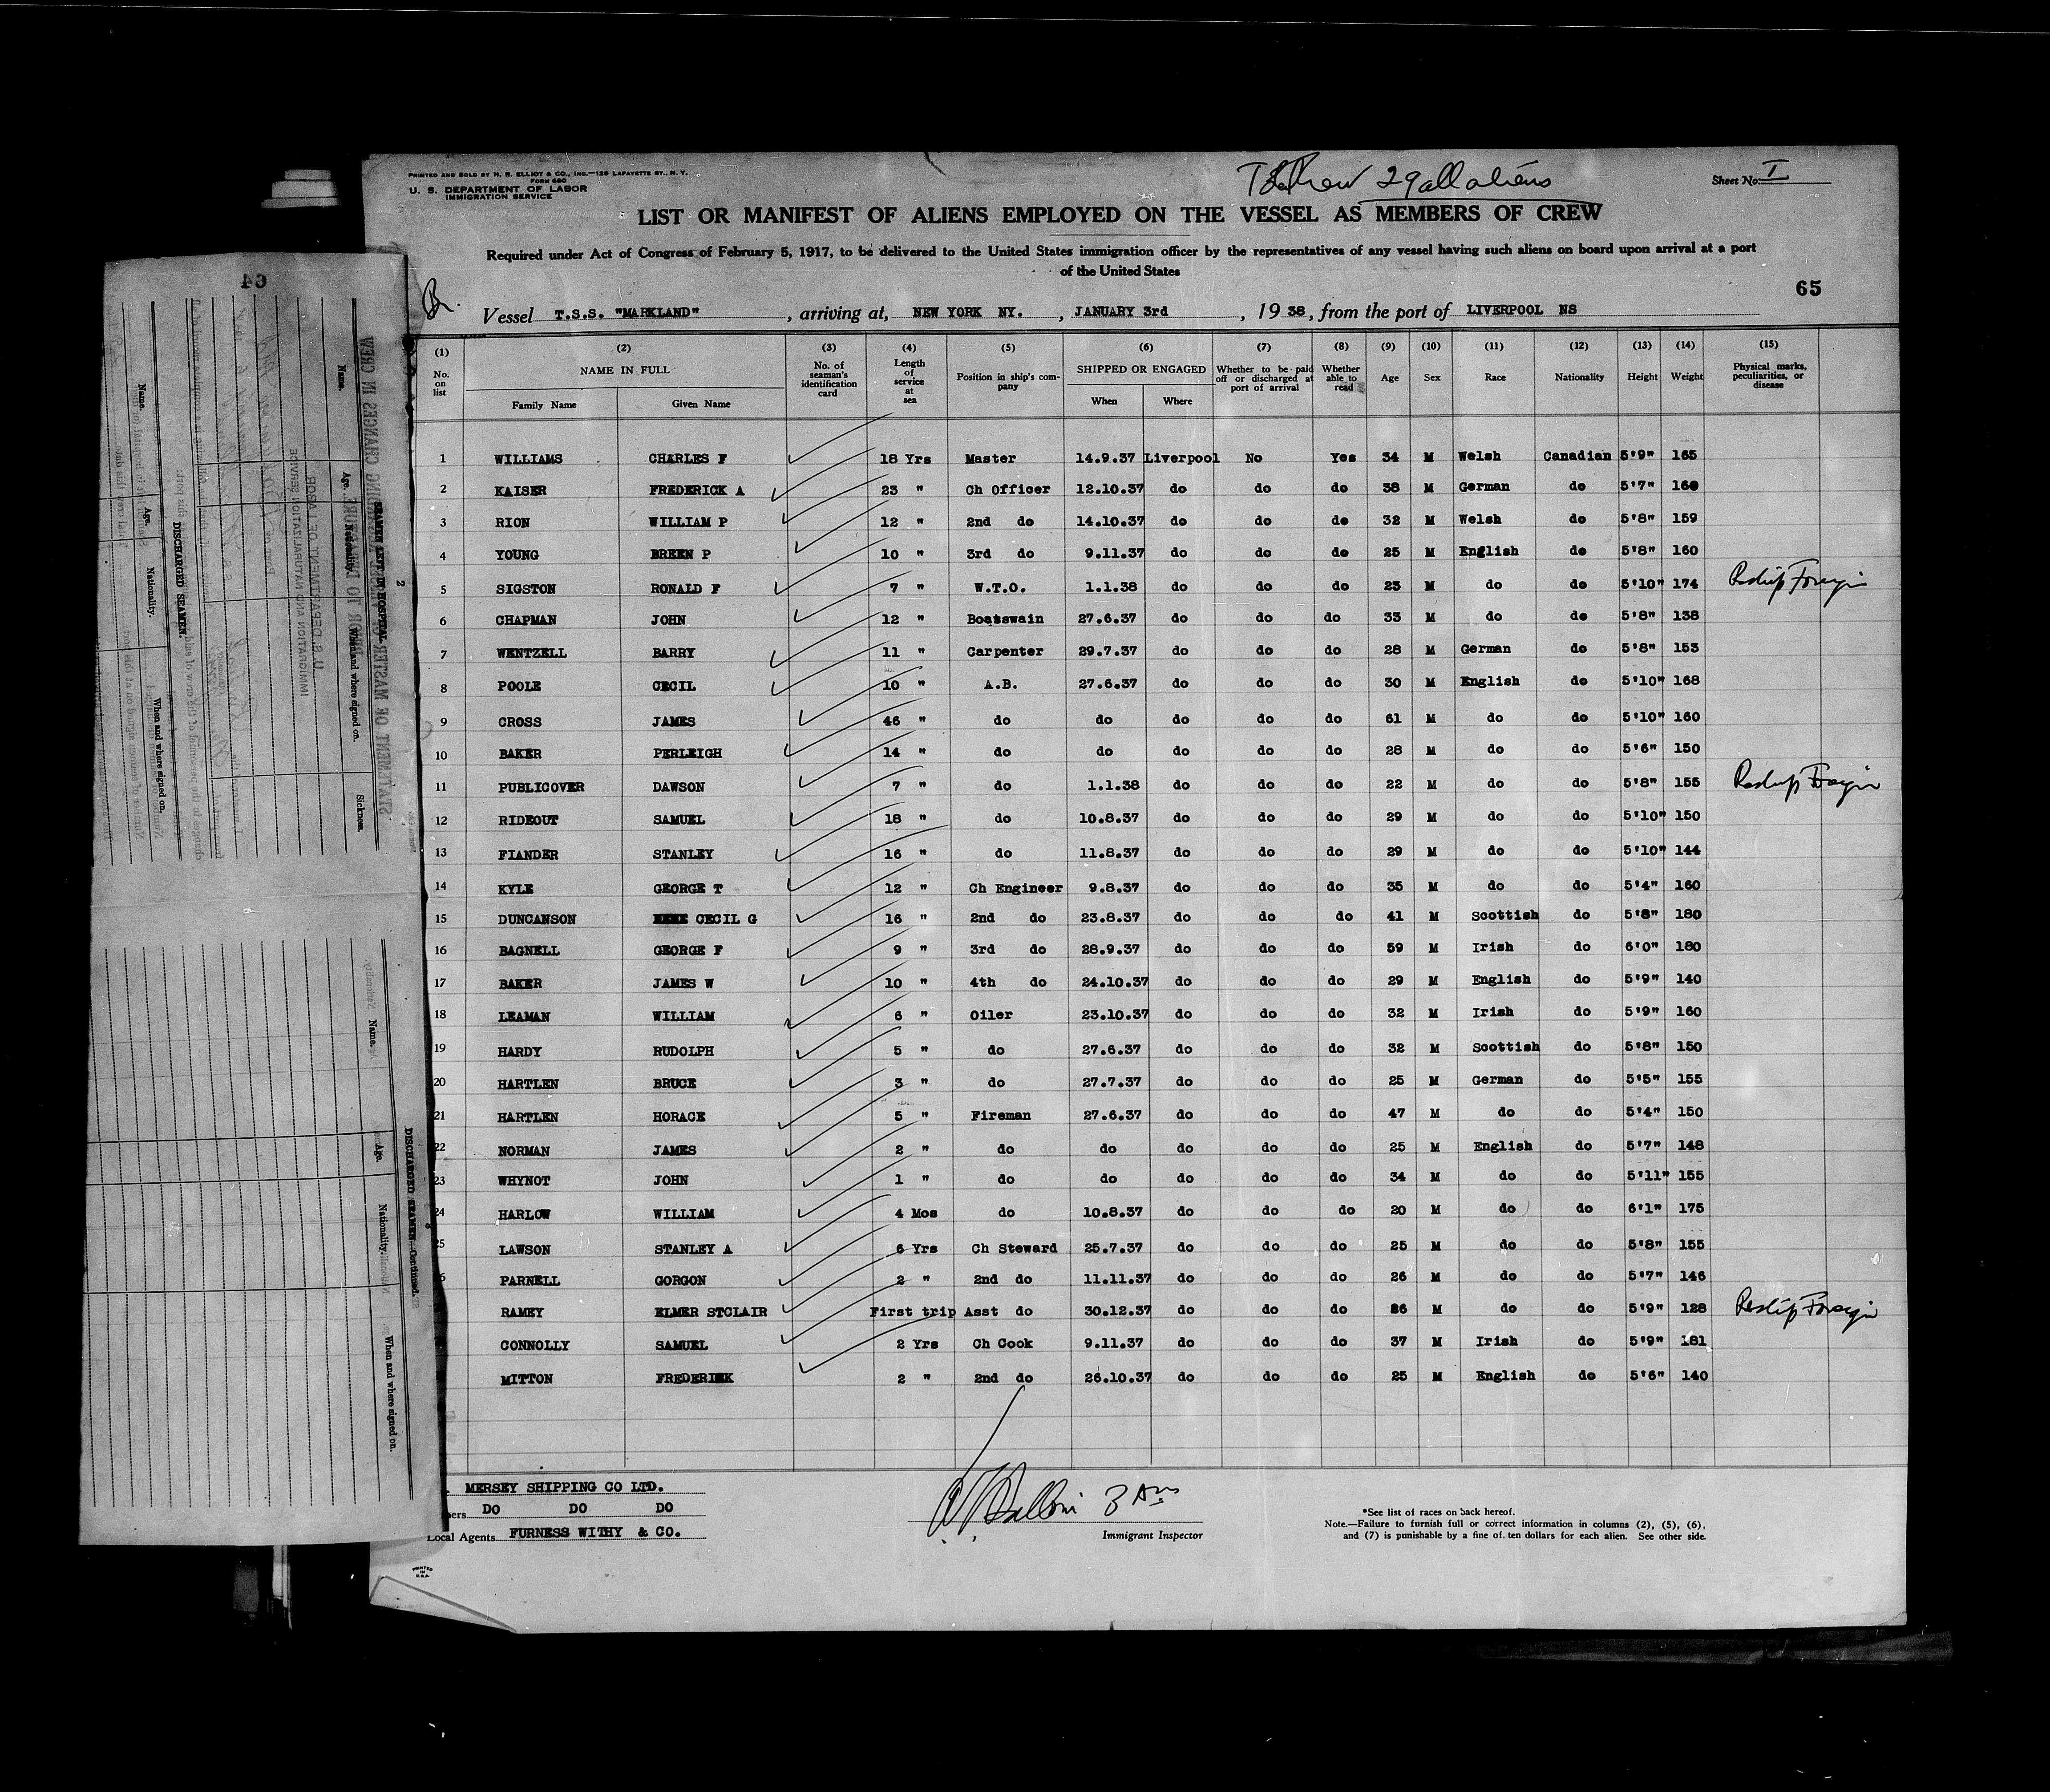 PRINTED AND SOLD BY H. R. ELLIOT & CO., INC.—129 LAFAYETTE ST., N. Y.
FORM 680
U. S. DEPARTMENT OF LABOR
IMMIGRATION SERVICE
29 all aliens
Sheet No. I
LIST OR MANIFEST OF ALIENS EMPLOYED ON THE VESSEL AS MEMBERS OF CREW
Required under Act of Congress of February 5, 1917, to be delivered to the United States immigration officer by the representatives of any vessel having such aliens on board upon arrival at a port
of the United States
65
Br. Vessel T.S.S. "MARKLAND", arriving at, NEW YORK NY., JANUARY 3rd, 1938, from the port of LIVERPOOL NS
(1) No. on list (2) NAME IN FULL Family Name Given Name (3) No. of seaman's identification card (4) Length of service at sea (5) Position in ship's company (6) SHIPPED OR ENGAGED When Where (7) Whether to be paid off or discharged at port of arrival (8) Whether able to read (9) Age (10) Sex (11) Race (12) Nationality (13) Height (14) Weight (15) Physical marks, peculiarities, or disease
1 WILLIAMS CHARLES F 18 Yrs Master 14.9.37 Liverpool No Yes 34 M Welsh Canadian 5'9" 165
2 KAISER FREDERICK A 23 " Ch Officer 12.10.37 do do do 38 M German do 5'7" 160
3 RION WILLIAM P 12 " 2nd do 14.10.37 do do do 32 M Welsh do 5'8" 159
4 YOUNG BREEN P 10 " 3rd do 9.11.37 do do do 25 M English do 5'8" 160
5 SIGSTON RONALD F 7 " W.T.O. 1.1.38 do do do 23 M do do 5'10" 174 Reship Foreign
6 CHAPMAN JOHN 12 " Boatswain 27.6.37 do do do 33 M do do 5'8" 138
7 WENTZELL BARRY 11 " Carpenter 29.7.37 do do do 28 M German do 5'8" 153
8 POOLE CECIL 10 " A.B. 27.6.37 do do do 30 M English do 5'10" 168
9 CROSS JAMES 46 " do do do do do 61 M do do 5'10" 160
10 BAKER PERLEIGH 14 " do do do do do 28 M do do 5'6" 150
11 PUBLICOVER DAWSON 7 " do 1.1.38 do do do 22 M do do 5'8" 155 Reship Foreign
12 RIDEOUT SAMUEL 18 " do 10.8.37 do do do 29 M do do 5'10" 150
13 FIANDER STANLEY 16 " do 11.8.37 do do do 29 M do do 5'10" 144
14 KYLE GEORGE T 12 " Ch Engineer 9.8.37 do do do 35 M do do 5'4" 160
15 DUNCANSON CECIL G 16 " 2nd do 23.8.37 do do do 41 M Scottish do 5'8" 180
16 BAGNELL GEORGE F 9 " 3rd do 28.9.37 do do do 59 M Irish do 6'0" 180
17 BAKER JAMES W 10 " 4th do 24.10.37 do do do 29 M English do 5'9" 140
18 LEAMAN WILLIAM 6 " Oiler 23.10.37 do do do 32 M Irish do 5'9" 160
19 HARDY RUDOLPH 5 " do 27.6.37 do do do 32 M Scottish do 5'8" 150
20 HARTLEN BRUCE 3 " do 27.7.37 do do do 25 M German do 5'5" 155
21 HARTLEN HORACE 5 " Fireman 27.6.37 do do do 47 M do do 5'4" 150
22 NORMAN JAMES 2 " do do do do do 25 M English do 5'7" 148
23 WHYNOT JOHN 1 " do do do do do 34 M do do 5'11" 155
24 HARLOW WILLIAM 4 Mos do 10.8.37 do do do 20 M do do 6'1" 175
25 LAWSON STANLEY A 6 Yrs Ch Steward 25.7.37 do do do 25 M do do 5'8" 155
6 PARNELL GORGON 2 " 2nd do 11.11.37 do do do 26 M do do 5'7" 146
RAMEY ELMER STCLAIR First trip Asst do 30.12.37 do do do 26 M do do 5'9" 128 Reship Foreign
CONNOLLY SAMUEL 2 Yrs Ch Cook 9.11.37 do do do 37 M Irish do 5'9" 181
MITTON FREDERICK 2 " 2nd do 26.10.37 do do do 25 M English do 5'6" 140
MERSEY SHIPPING CO LTD.
ners DO DO DO
Local Agents FURNESS WITHY & CO.
Immigrant Inspector
*See list of races on back hereof.
Note.—Failure to furnish full or correct information in columns (2), (5), (6),
and (7) is punishable by a fine of ten dollars for each alien. See other side.
PRINTED IN U.S.A.
64
STATEMENT OF MASTER
CHANGES IN CREW
U. S. DEPARTMENT OF LABOR
IMMIGRATION AND NATURALIZATION SERVICE
SEAMEN LEFT IN HOSPITAL
2
Name. Age. Nationality. When and where signed on. Sickness.
DISCHARGED SEAMEN.
Name. Age. Nationality. When and where signed on.
DISCHARGED SEAMEN—Continued.
Name. Age. Nationality. When and where signed on.